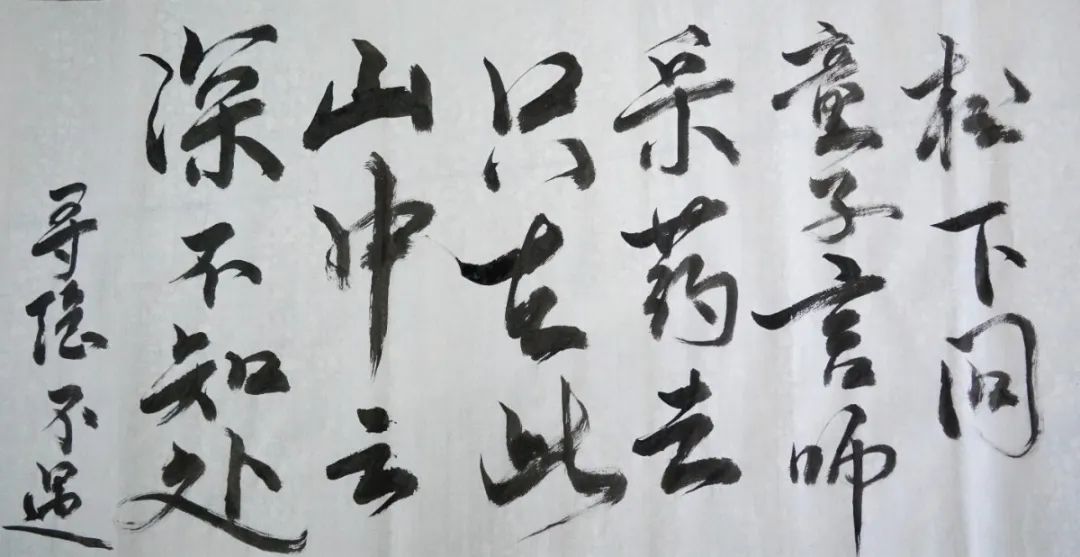 松下问
童子言师
采药去
只在此
山中云
深不知处
寻隐不遇